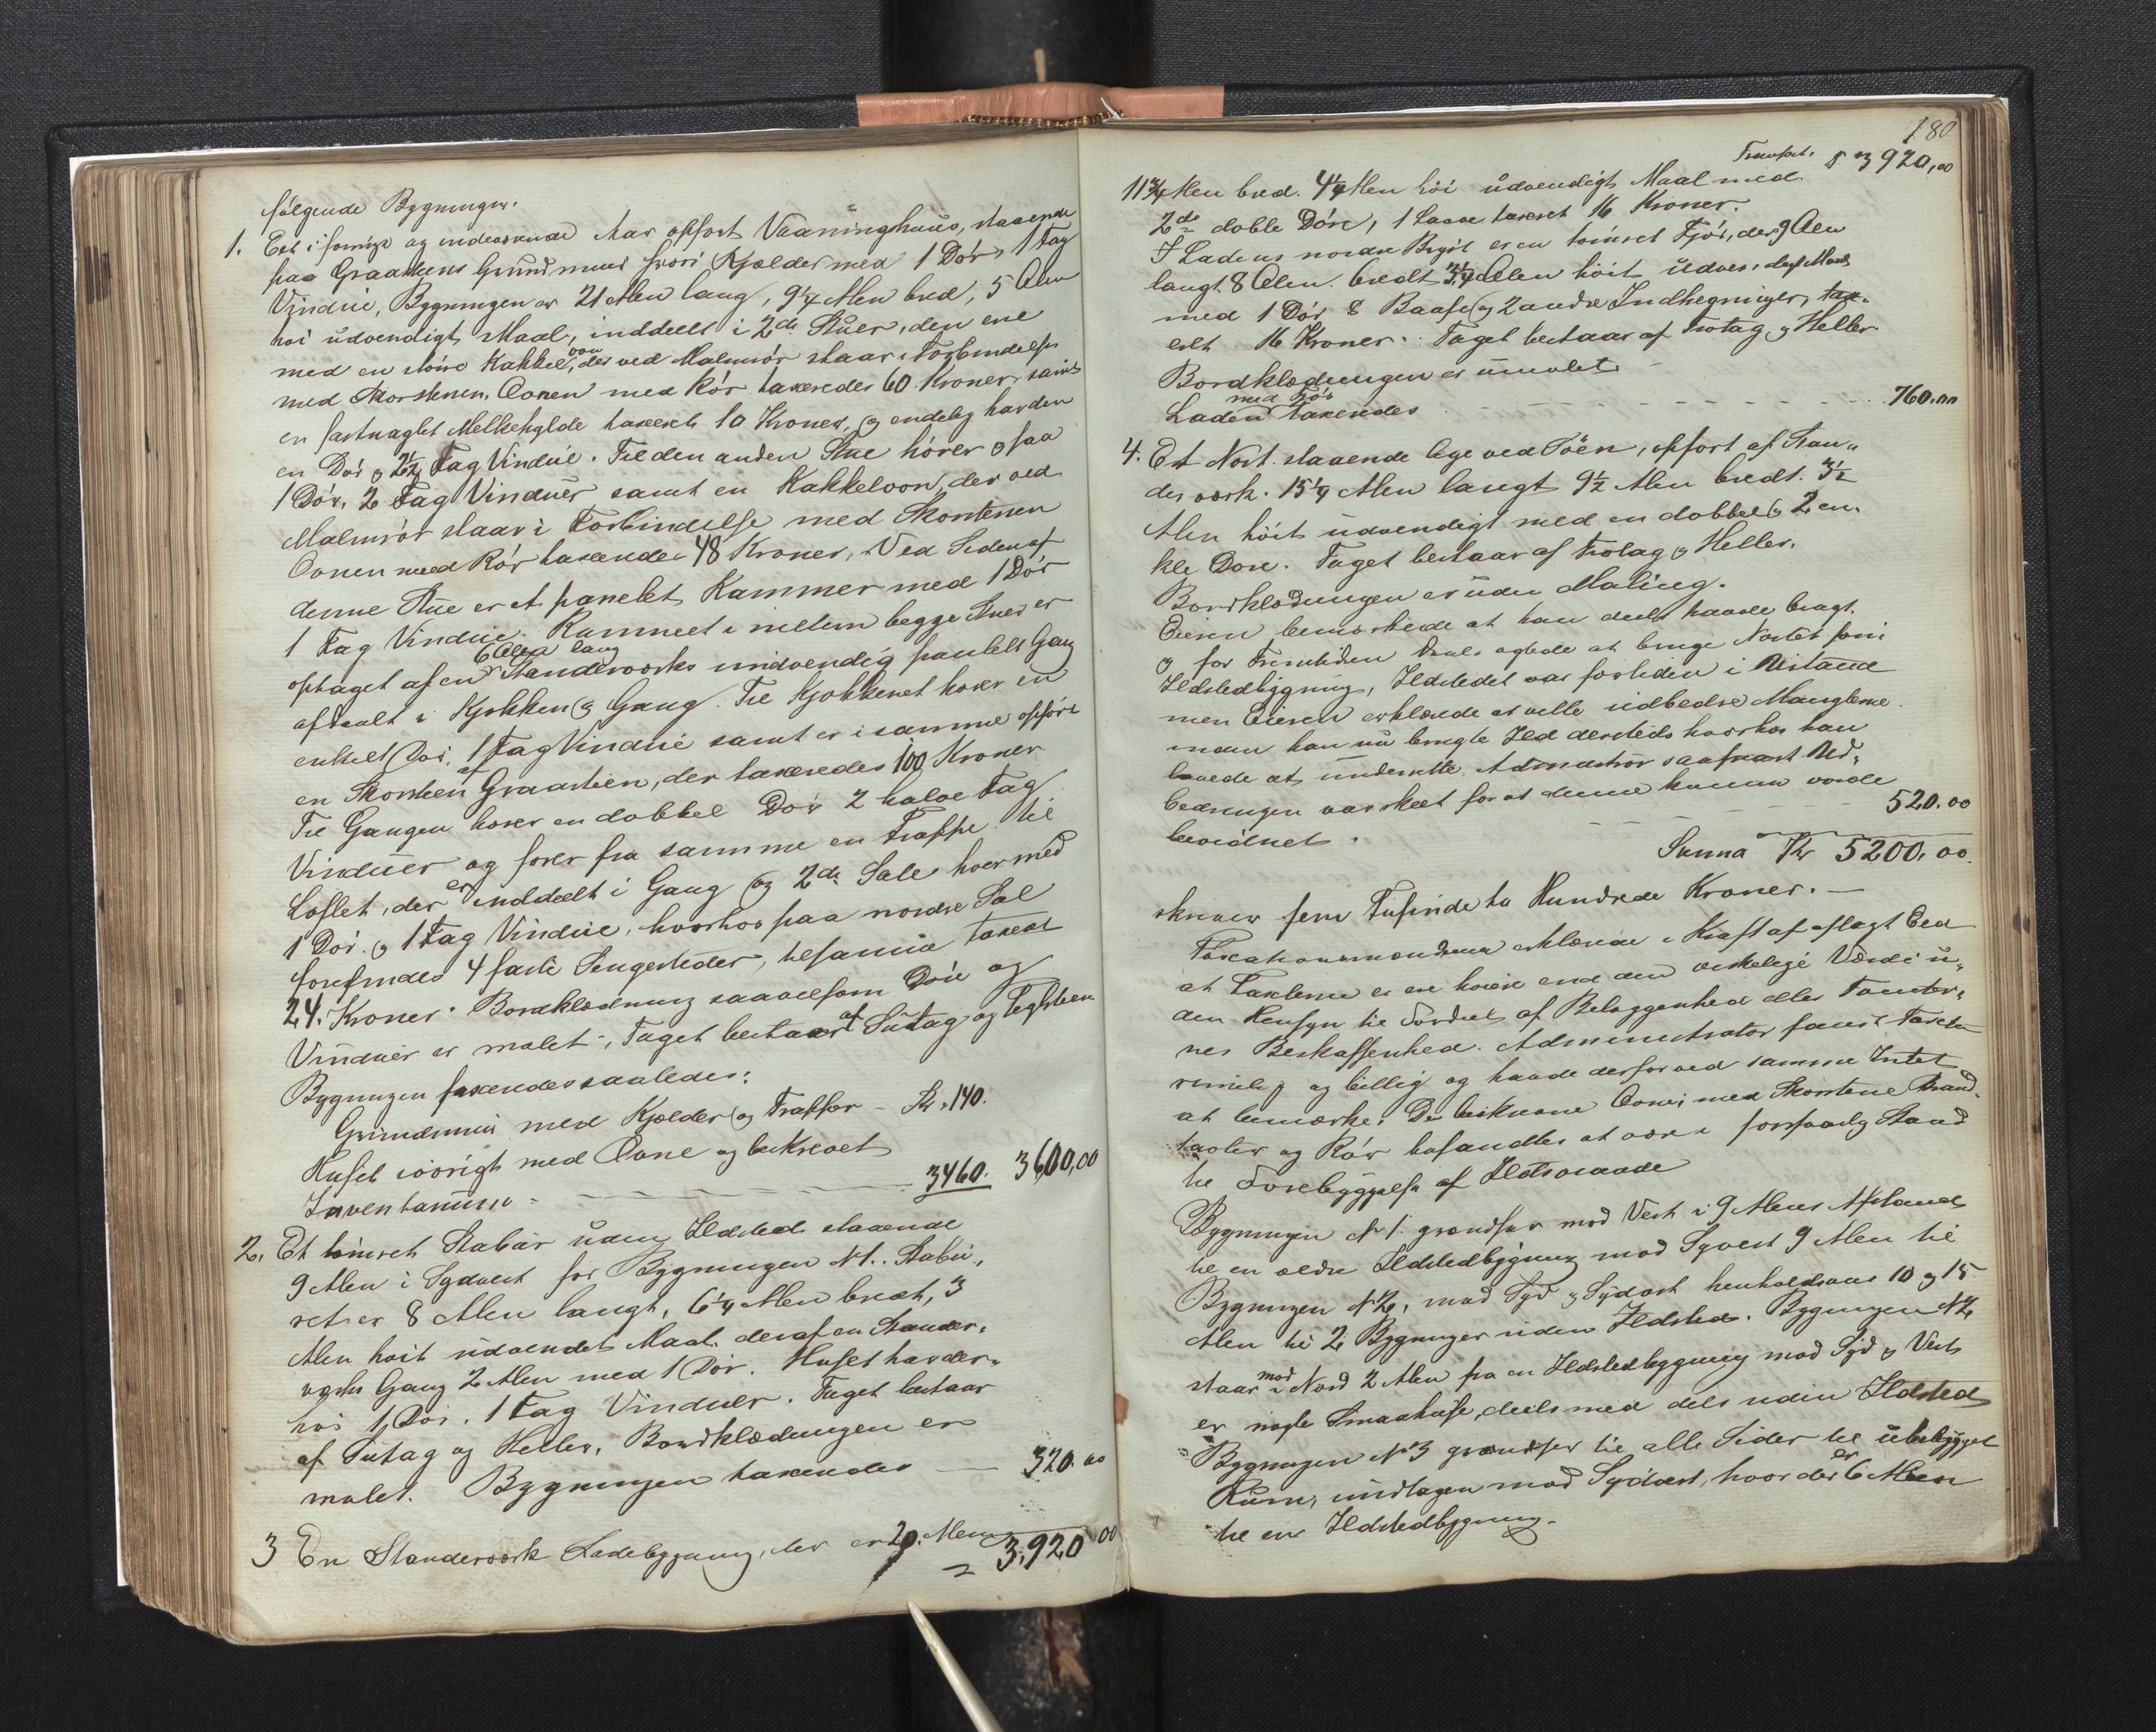 følgende Bygninger.
1. Et i forrige og indeværende Aar opført Vaaningshuus, staaende
paa Graasteens Grundmuur hvori Kjælder med 1 Dör, 1 Fag
Vindue, Bygningen er 21 Alen lang, 9¼ Alen bred, 5 Alen
høi udvendigt Maal, inddeelt i 2de Stuer, den ene
med en større Kakkelovn, der ved Malmrör staar i Forbindelse
med Skorstenen. Ovnen med Rör taxeredes 60 Kroner, samt
en fastnaglet Melkehylde taxeret 10 Kroner, og endelig har den
en Dör og 2½ Fag Vindue. Til den anden Stue hörer ogsaa
1 Dör, 2 Fag Vinduer samt en Kakkelovn, der ved
Malmrör staar i Forbindelse med Skorstenen
Ovnen med Rör taxeredes 48 Kroner, Ved Siden af
denne Stue er et panelet Kammer med 1 Dör
1 Fag Vindue. Rummet i mellem begge Stuer er
optaget af en 6 Alen lang Standerværks indvendig panelet Gang
afdeelt i Kjøkken og Gang. Til Kjøkkenet hører en
enkelt Dör, 1 Fag Vindue samt er i samme opført
en Skorsten af Graasteen, der taxeredes 100 Kroner
Til Gangen hører en dobbel Dör 2 halve Fag
Vinduer og fører fra samme en Trappe til
Loftet, der er inddeelt i Gang og 2de Sale hver med
1 Dör og 1 Fag Vindue, hvorhos paa nordre Sal
forefindes 4 faste Sengesteder, tilsamme taxeret
24. Kroner. Bordklædning saavelsom Döre og
Vinduer er malet, Taget bestaar af Sutag og Teglsteen
Bygningen taxeredes saaledes:
Grundmuur med Kjælder og Trapper - Kr. 140.
Huset iövrigt med Ovne og beskrevet
Inventarium - 3460. 3600,00
2. Et tömret Stabur uden Ildsted staaende
9 Alen i Sydvest for Bygningen No 1. Stabu-
ret er 8 Alen langt, 6¼ Alen bredt, 3
Alen høit udvendet Maal deraf en Stander-
værks Gang 2 Alen med 1 Dör. Huset har der-
hos 1 Dör. 1 Fag Vinduer. Taget bestaar
af Sutag og Heller, Bordklædningen er
malet. Bygningen taxeredes — 320.00
3 En Standerværk Ladebygning, der er 20 Alen
3,920 00
180
Transport. 3920,00
11¾ Alen bred. 4¼ Alen höi udvendigt Maal med
2de doble Döre, 1 Laave taxeret 16 Kroner.
I Ladens nordre Bygt er en tömret Fjös, der 9 Alen
langt 8 Alen bredt 3¼ Alen höit udvendigt Maal
med 1 Dör 8 Baase og 2 andre Indhegninger, tax-
eret 16 Kroner. Taget bestaar af Trotag og Heller
Bordklædningen er umalet
Laden med Fjös taxeredes - - - 760.00
4. Et Nøst staaende lige ved Söen, opført af Stan-
derværk. 15¼ Alen langt 9½ Alen bredt. 3½
Alen höit udvendigt med en dobbel og 2 en-
kle Döre. Taget bestaar af Trotag og Heller.
Bordklædningen er uden Maling.
Eieren bemærkede at han deels havde bragt
og for Fremtiden deels agtede at bruge Nøstet som
Ildstedbygning, Ildstedet var fortiden i Ustand
men Eieren erklærede at ville udbedre Manglerne
inden han nu brugte Ild dersteds hvorhos han
lovede at underrette Administrator saasnart Ud-
bedringen var skeet for at denne kunne vorde
bevidnet. - - - 520.00
Summa Kr 5200,00
skriver fem Tusinde to Hundrede Kroner. —
Taxationsmændene erklærede i Kraft af aflagt Eed
at Taxterne er ei høiere end den virkelige Værdi u-
den Hensyn til Fordeel af Beliggenhed eller Tomter-
nes Beskaffenhed. Administrator fandt Taxten
rimelig og billig og havde derfor ved samme Intet
at bemærke. De beskrevne Ovne med Skorstene Brand-
tavler og Rör befandtes at være i forsvarlig Stand
til Forebyggelse af Ildsvaade
Bygningen No 1. grændser mod Vest i 9 Alens Afstand
til en ældre Ildstedbygning mod Sydvest 9 Alen til
Bygningen No 2, mod Syd og Sydost henholdsvis 10 og 15
Alen til 2 Bygninger uden Ildsted. Bygningen No 2
staar mod Nord 2 Alen fra en Ildstedbygning mod Syd og Vest
er nogle Smaahuse, deels med dels uden Ildsted
Bygningen No 3 grændser til alle Sider til ubebygget
Rum, undtagen mod Sydvest, hvor der er 6 Alen
til en Ildstedbygning.